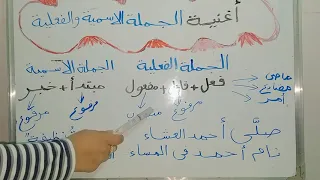 أغنية الجملة الاسمية والفعلية
الجملة الفعلية الجملة الاسمية
ماضي مضارع أمر فعل + فاعل + مفعول مبتدأ + خبر
مرفوع مرفوع مرفوع
صلَّى أحمد العشاء
نام أحمد في المساء